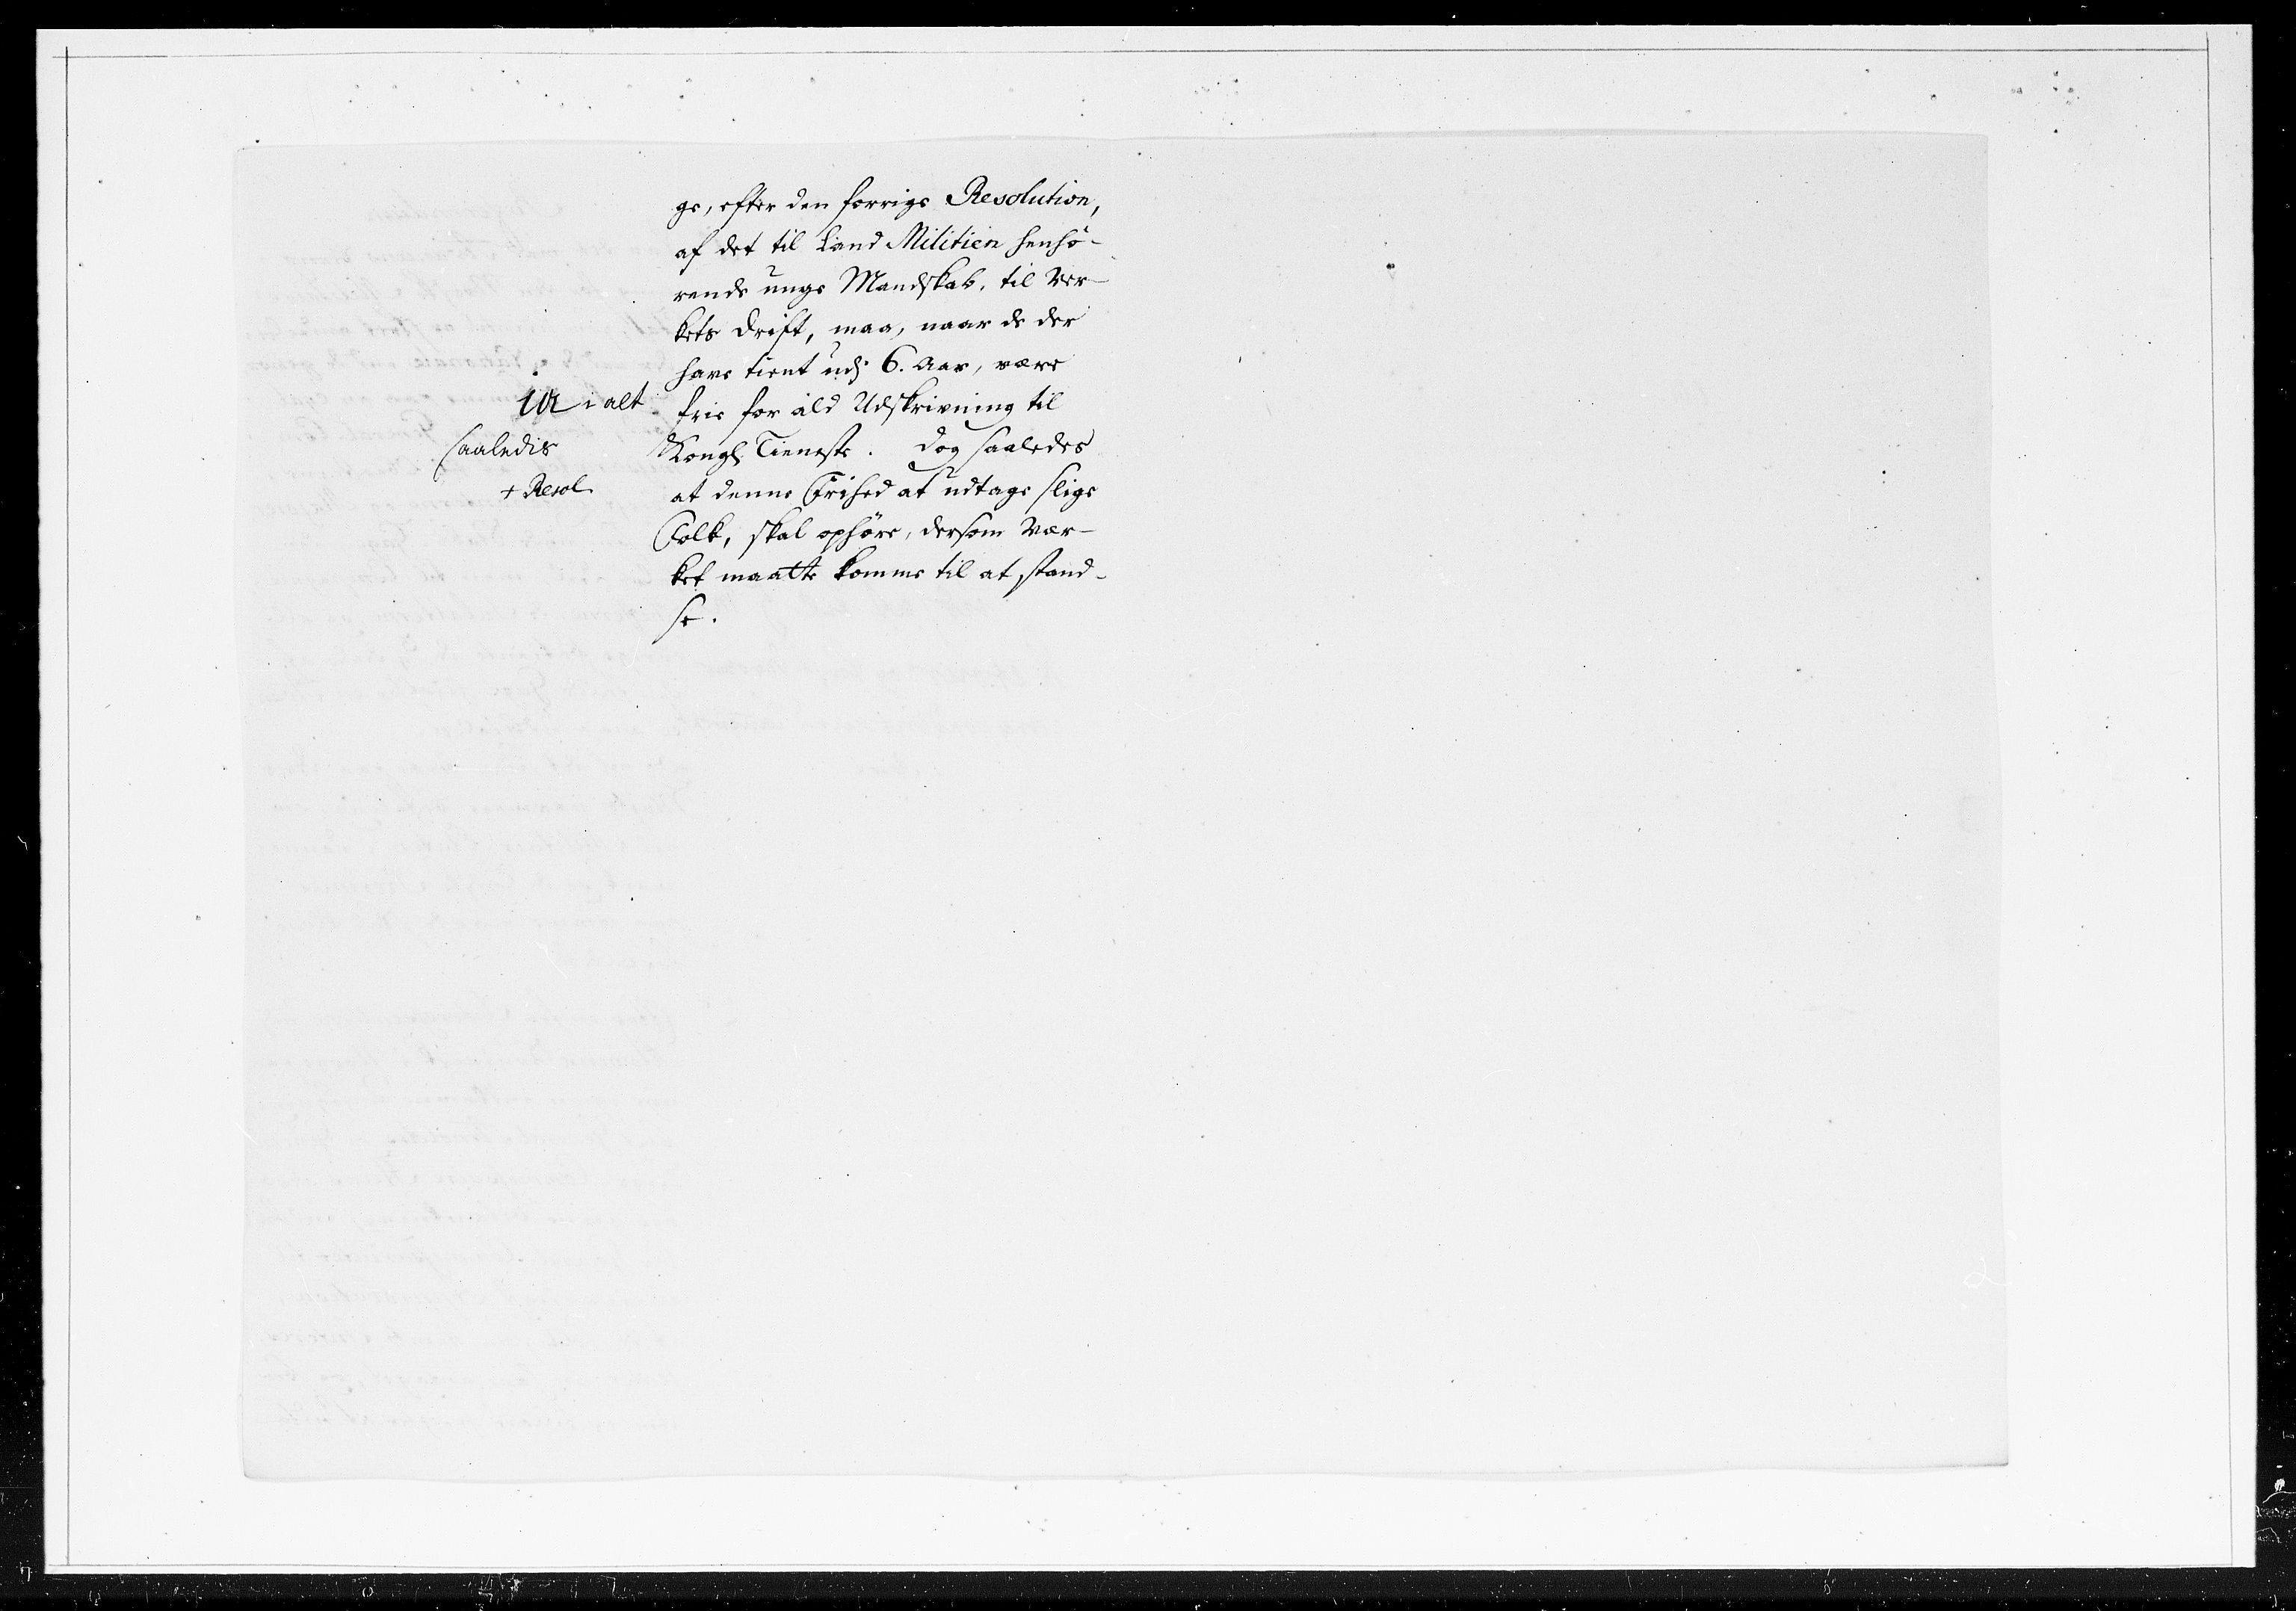 ge, efter den forrige Resolution,
af det til Land Militien henhö-
rende unge Mandskab, til Ver-
kets Drift, maa, naar de der
have tient udj 6. Aar, være
frie for ald Udskrivning til
Kongl. Tieneste. Dog saaledes
at denne Frihed at udtage slige
Folk, skal ophöre, dersom Vær-
ket maatte komme til at stand-
se.
i alt
saaledis
+ Resol